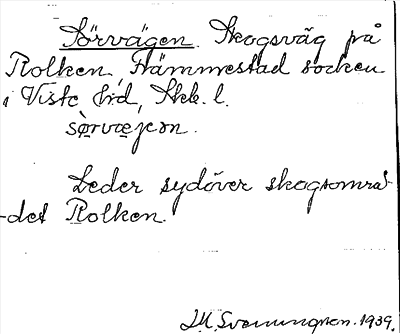 Sörvägen. Skogsväg på
Rolken, Främmestad socken
i Viste hd, Skb. l.
sòrvæjen.
Leder sydöver skogsområ-
-det Rolken.
1939.